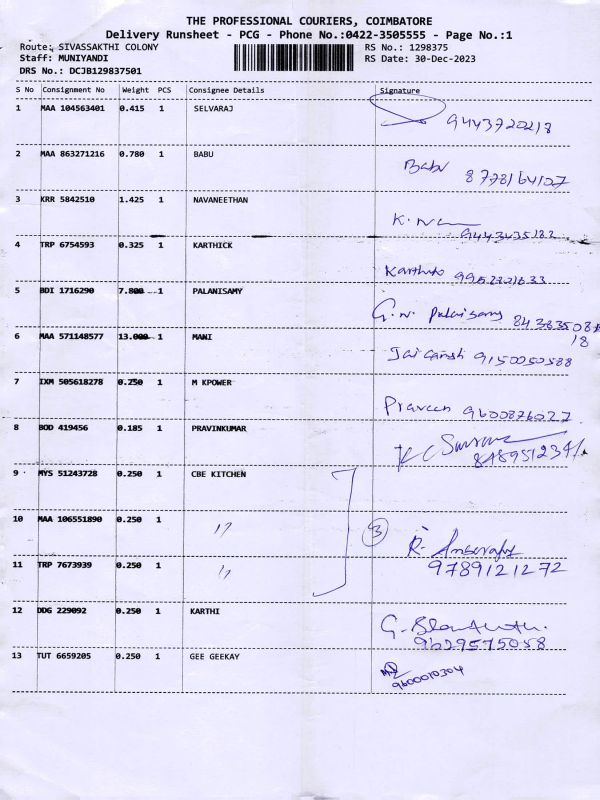 THE PROFESSIONAL COURIERS, COIMBATORE
Delivery Runsheet - PCG - Phone No.:0422-3505555 - Page No.:1
Route: SIVASSAKTHI COLONY RS No.: 1298375
Staff: MUNIYANDI RS Date: 30-Dec-2023
DRS No.: DCJB129837501
S No Consignment No Weight PCS Consignee Details Signature
1 MAA 104563401 0.415 1 SELVARAJ
9443720218
2 MAA 863271216 0.780 1 BABU Babu
8778164107
3 KRR 5842510 1.425 1 NAVANEETHAN
9443435182
4 TRP 6754593 0.325 1 KARTHICK
5 BDI 1716290 7.800 1 PALANISAMY
G.N. Palanisamy
18
6 MAA 571148577 13.000 1 MANI
Jai Ganesh 9150050588
7 IXM 505618278 0.250 1 M KPOWER
Praveen 9600876027
8 BOD 419456 0.185 1 PRAVINKUMAR
9 MYS 51243728 0.250 1 CBE KITCHEN
10 MAA 106551890 0.250 1 〃
3
11 TRP 7673939 0.250 1 〃
9789121272
12 DDG 229092 0.250 1 KARTHI
9629575058
13 TUT 6659205 0.250 1 GEE GEEKAY
9600010304